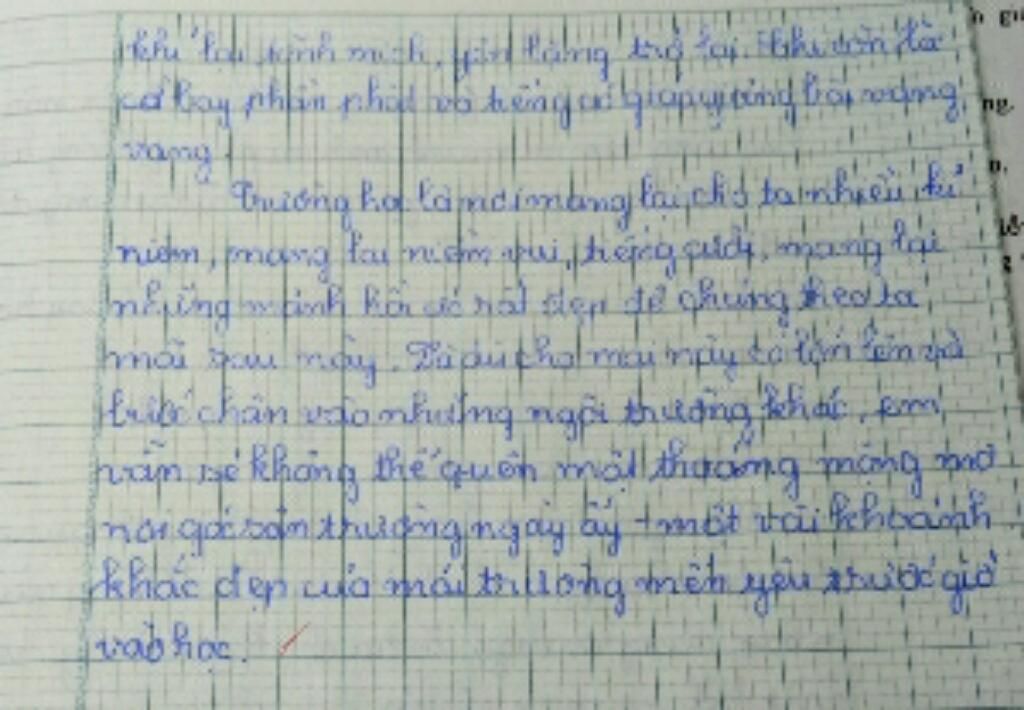 khí lại tĩnh mịch, yên lặng trở lại. Chỉ còn lá
cờ bay phấp phới và tiếng cô giáo giảng bài vang
vang.
Trường học là nơi mang lại cho ta nhiều kỉ
niệm, mang lại niềm vui, tiếng cười, mang lại
những mảnh hồi ức rất đẹp để chúng theo ta
mãi sau này. Dù cho mai này có lớn lên và
bước chân vào những ngôi trường khác, em
vẫn sẽ không thể quên một thoáng mộng mơ
nơi góc sân trường ngày ấy - một vài khoảnh
khắc đẹp của mái trường mến yêu trước giờ
vào học.